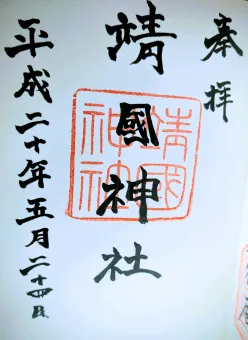 奉拝
靖國神社
靖國神社
平成二十年五月二十四日